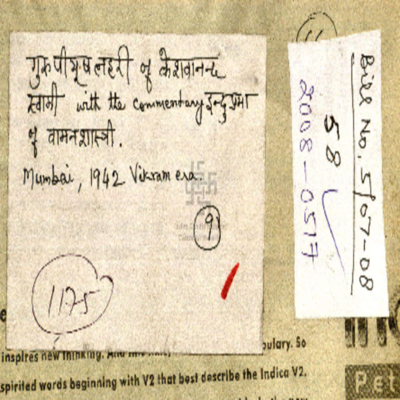 गुरुपीयूषलहरी of केशवानन्द
स्वामी with the commentary इन्दुप्रभा
of वामनशास्त्री.
Mumbai, 1942 Vikram era.
9
1175
Bill No. 5/07-08
58
2008-0517
inspires new thinking. And this
bulary. So
spirited words beginning with V2 that best describe the Indica V2.
Pet